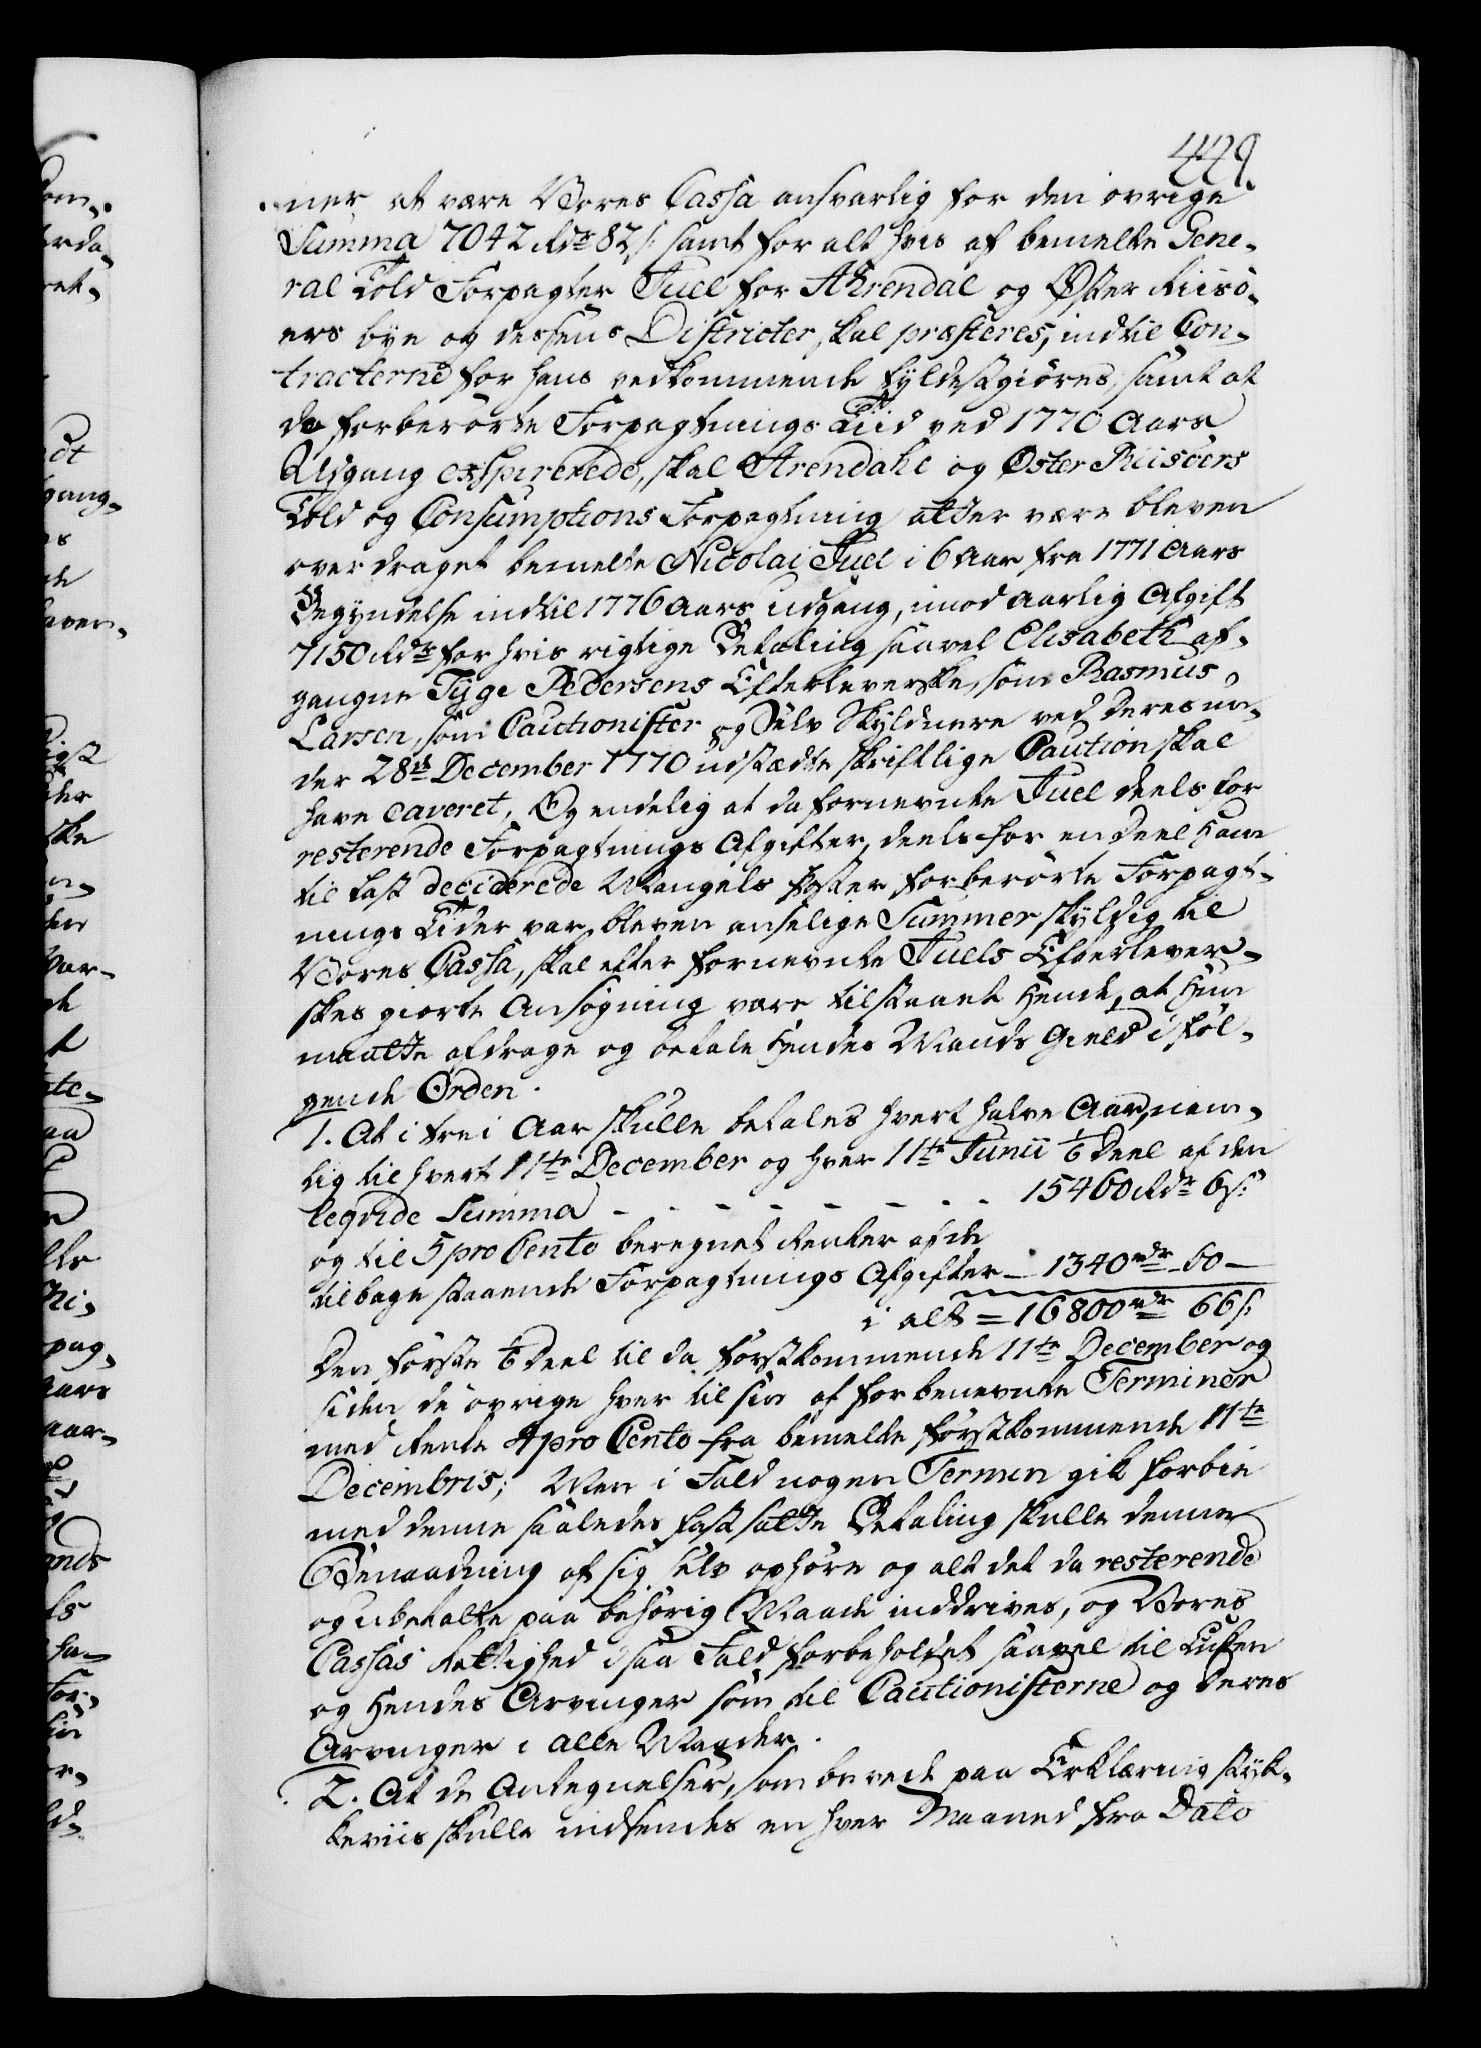 449
ner at være Vores Cassa ansvarlig for den øvrige
Summa 7042 Rdr 82 s: samt for alt hvis af bemelte Gene-
ral Told Forpagter Juel for Ahrendal og Øster Riisö-
ers bye og dessens Districter, skal præsteres, indtil Con-
tracterne for hans vedkommende fyldestgiöres, samt at
da forberörte Forpagtnings Tiid ved 1770 Aars
Udgang exspirerede, skal Arendahl og Øster Riisöers
Told og Consumptions Forpagtning atter være bleven
overdraget bemelte Nicolai Juel i 6 Aar fra 1771 Aars
Begyndelse indtil 1776 Aars udgang, imod aarlig Afgift
7150 Rdr for hvis rigtige Betaling saavel Elisabeth af-
gangne Tyge Pedersens Efterleverske, som Rasmus
Larsen, som Cautionister og Selv Skyldnere ved deres un-
der 28de December 1770 udstædte skriftlige Caution skal
have caveret, Og endelig at da fornevnte Juel deels for
resterende Forpagtnings Afgifter, deels for en deel ham
til Last deciderede Mangels Poster forberörte Forpagt-
nings Tider var bleven anselige Summer skyldig til
Vores Cassa, skal efter fornevnte Juels Efterlever-
skes giorte Ansögning være tilstaaet hende, at hun
maatte afdrage og betale hendes Mands Gield i föl-
gende Orden.
1. At i trei Aar skulle betales hvert halve Aar, nem-
lig til hvert 11te December og hver 11te Junii 1/6 Deel af den
liqvide Summa - - - - - - - - 15460 Rdr 6 s:
og til 5 pro Cento beregnet Renter af de
tilbage staaende Forpagtnings Afgifter - 1340 rdr 60 -
i alt = 16800 rdr 66 s:
Den förste 1/6 Deel til da förstkommende 11te December og
siden de övrige hver til sin af forbenevnte Terminer
med Rente 4 pro Cento fra bemelte förstkommende 11te
Decembris; Men i Fald nogen Termin gik forbie
med denne saaledes fastsatte Betaling skulle denne
Benaadning af sig selv ophöre og alt det da resterende
og ubetalte paa behörig Maade inddrives, og Vores
Cassas Rettighed i saa Fald forbeholdet saavel til Enken
og hendes Arvinger som til Cautionisterne og deres
Arvinger i alle Maader.
2. At de Antegnelser, som beroede paa Erklæring styk-
keviis skulle indsendes en hver Maaned fra Dato